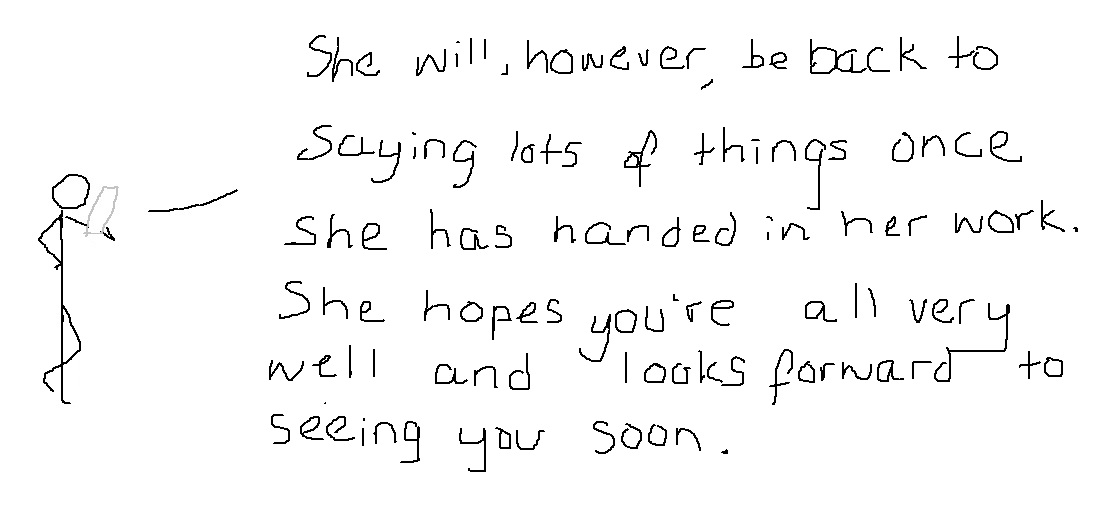 She will, however, be back to
saying lots of things once
she has handed in her work.
She hopes you're all very
well and looks forward to
seeing you soon.